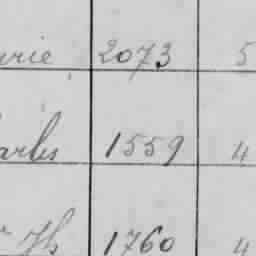 arie 2073 5
arles 1559 4
Jh 1760 4